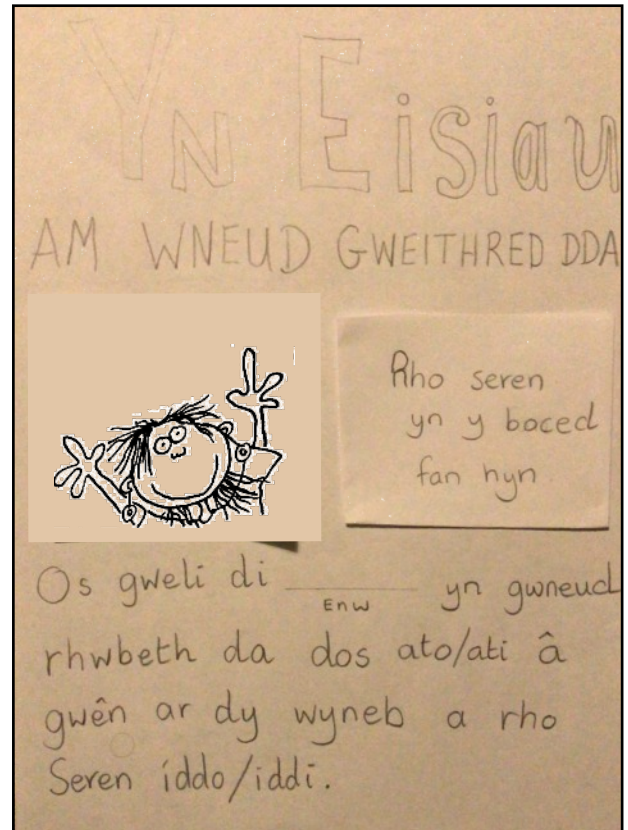 YN EisiaU
AM WNEUD GWEITHRED DDA
Rho seren
yn y boced
fan hyn
Os gweli di ________ yn gwneud
Enw
rhwbeth da dos ato/ati â
gwên ar dy wyneb a rho
Seren iddo/iddi.